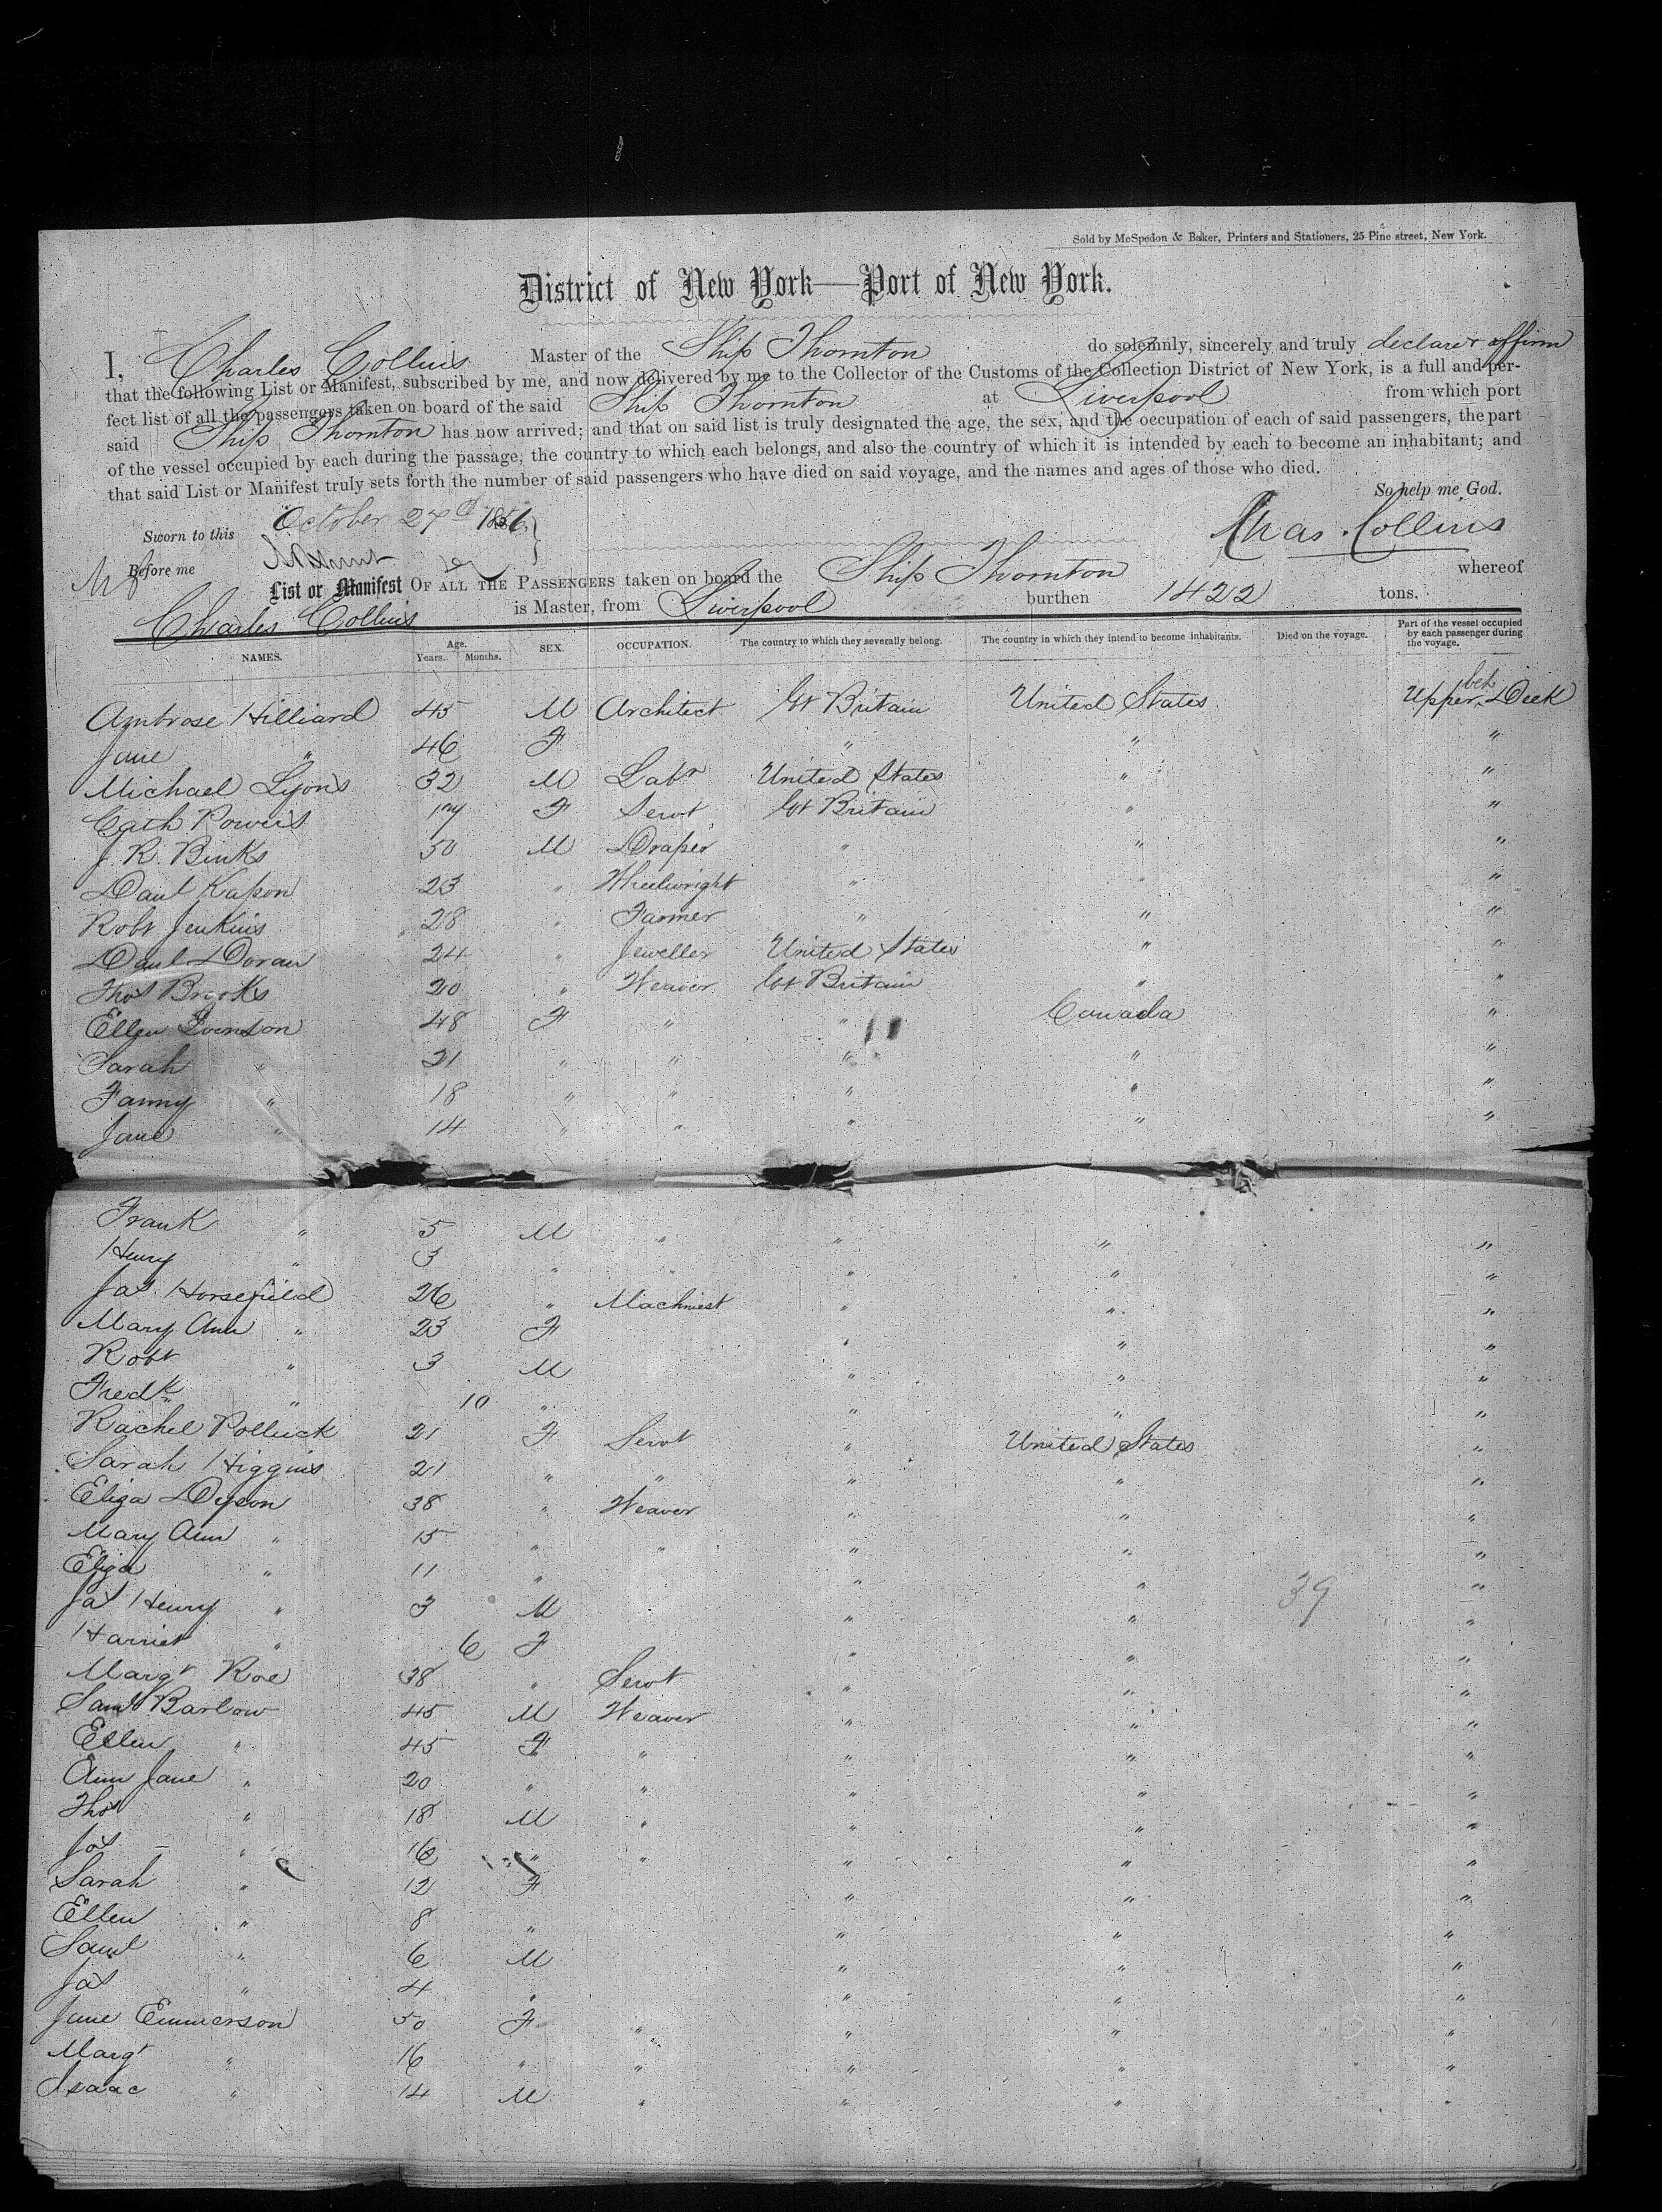 Sold by McSpedon & Baker, Printers and Stationers, 25 Pine street, New York.
District of New York—Port of New York.
I, Charles Collins Master of the Ship Thornton do solemnly, sincerely and truly declare & affirm
that the following List or Manifest, subscribed by me, and now delivered by me to the Collector of the Customs of the Collection District of New York, is a full and per-
fect list of all the passengers taken on board of the said Ship Thornton at Liverpool from which port
said Ship Thornton has now arrived; and that on said list is truly designated the age, the sex, and the occupation of each of said passengers, the part
of the vessel occupied by each during the passage, the country to which each belongs, and also the country of which it is intended by each to become an inhabitant; and
that said List or Manifest truly sets forth the number of said passengers who have died on said voyage, and the names and ages of those who died.
So help me God.
Sworn to this October 27 1856
Chas. Collins
Before me
List or Manifest OF ALL THE PASSENGERS taken on board the Ship Thornton whereof
Charles Collins is Master, from Liverpool burthen 1422 tons.
NAMES. Age. Years. Months. SEX. OCCUPATION. The country to which they severally belong. The country in which they intend to become inhabitants. Died on the voyage. Part of the vessel occupied by each passenger during the voyage.
Ambrose Hilliard 45 M Architect Gt Britain United States Upper bet Deck
Jane " 46 F " " "
Michael Lyons 32 M Labr United States " "
Cath Powers 17 F Servt Gt Britain " "
J. R. Binks 50 M Draper " " "
Danl Kapon 23 " Wheelwright " " "
Robt Jenkins 28 " Farmer " " "
Danl Doran 24 " Jeweller United States " "
Thos Brooks 20 " Weaver Gt Britain " "
Ellen 48 F " " Canada "
Sarah " 21 " " " " "
Fanny " 18 " " " " "
Jane " 14 " " " " "
Frank " 5 M " " " "
Henry " 3 " " " " "
Jas Horsefield 26 " Machinest " " "
Mary Ann " 23 F " " "
Robt " 3 M " " "
Fredk " 10 " " " "
Rachel Polluck 21 F Servt " United States "
Sarah Higgins 21 " " " " "
Eliza Dyson 38 " Weaver " " "
Mary Ann " 15 " " " " "
Eliza " 11 " " " "
Jas Henry " 3 M " " 39 "
Harriet " 6 F " " "
Margt Roe 38 " Servt " " "
Saml Barlow 45 M Weaver " " "
Ellen " 45 F " " " "
Ann Jane " 20 " " " " "
Thos " 18 M " " " "
Jos " 16 " " " " "
Sarah " 12 F " " "
Ellen " 8 " " " "
Saml " 6 M " " "
Jas " 4 " " " "
Jane Emmerson 50 F " " " "
Margt " 16 " " " " "
Isaac " 14 M " " " "